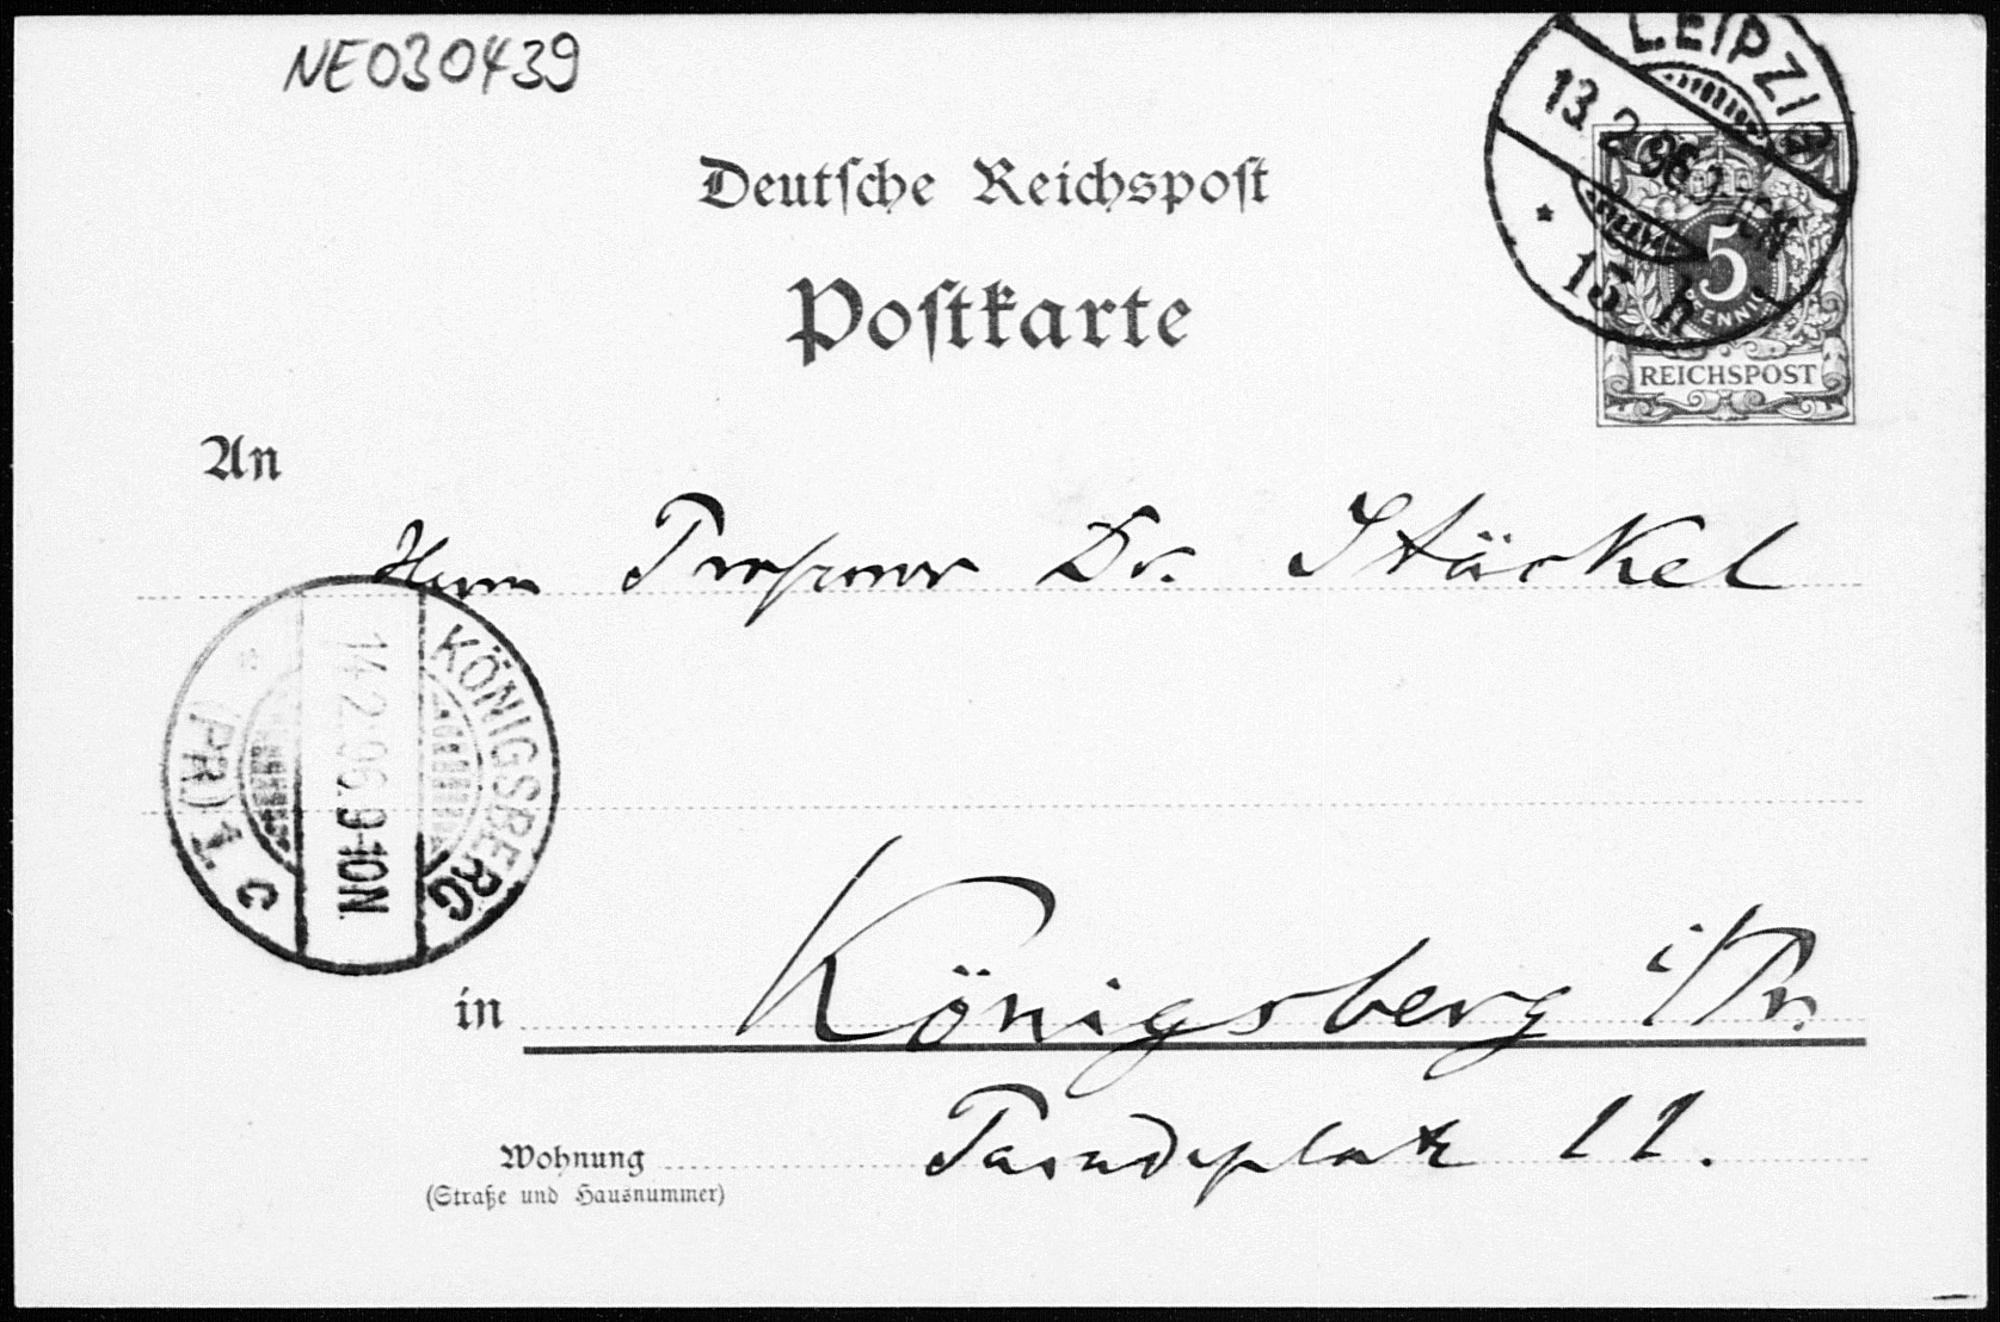 NE030439
LEIPZIG
13.2.96
13 h
5
PFENNIG
REICHSPOST
Deutsche Reichspost
Postkarte
An
Herrn Professor Dr. Stäckel
KÖNIGSBERG
14.2.96.9-10N
(PR.) 1 c
in Königsberg i/Pr.
Wohnung Paradeplatz 11.
(Straße und Hausnummer)